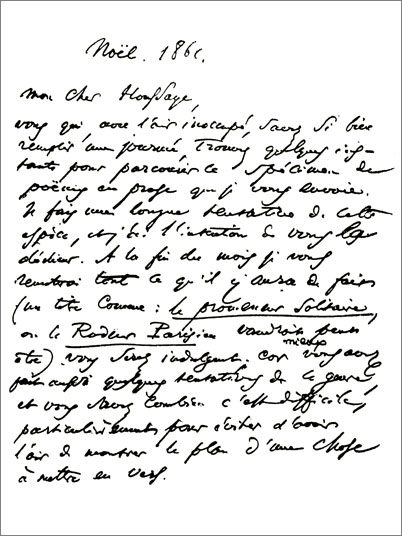 Noël. 1861.
mon cher Houssaye,
vous qui avec l'air inoccupé, savez si bien
remplir une journée, Trouvez quelques ins-
tants pour parcourir ce spécimen de
poëmes en prose que je vous envoie.
Je fais une longue tentative de cette
espèce, et j'ai l'intention de vous la
dédier. A la fin du mois je vous
remettrai tout ce qu'il y aura de fait
(un titre comme : le promeneur Solitaire,
ou le Rodeur Parisien vaudrait peut
mieux
être) vous serez indulgent. car vous avez
fait aussi quelques tentatives de ce genre,
et vous savez combien c'est difficile,
particulièrement pour éviter d'avoir
l'air de montrer le plan d'une chose
à mettre en vers.